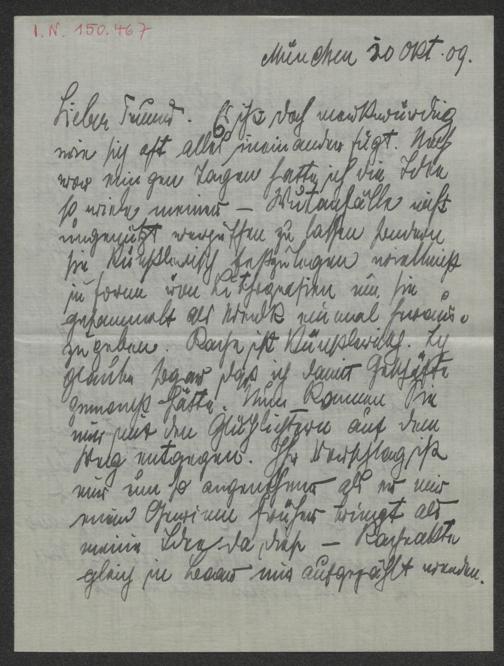 I.N. 150.467
München 20 Okt. 09.
Lieber Freund. Es ist doch merkwürdig
wie sich oft alles ineinander fügt. Noch
vor einigen Tagen hatte ich die Idee
so viele meiner – Wutanfälle nicht
ungenützt verpuffen zu lassen sondern
sie künstlerisch festzulegen vielleicht
in Form von Lithografien um sie
gesammelt als Werk einmal heraus-
zugeben. Rache ist künstlerisch. Ich
glaube sogar daß ich damit Geschäfte
gemacht hätte. Nun kommen Sie
mir mit den Glühlichtern auf dem
Weg entgegen. Ihr Vorschlag ist
mir um so angenehmer als er mir
einen Gewinn früher bringt als
meine Idee da diese – Racheakte
gleich in baar mir ausgezahlt werden.